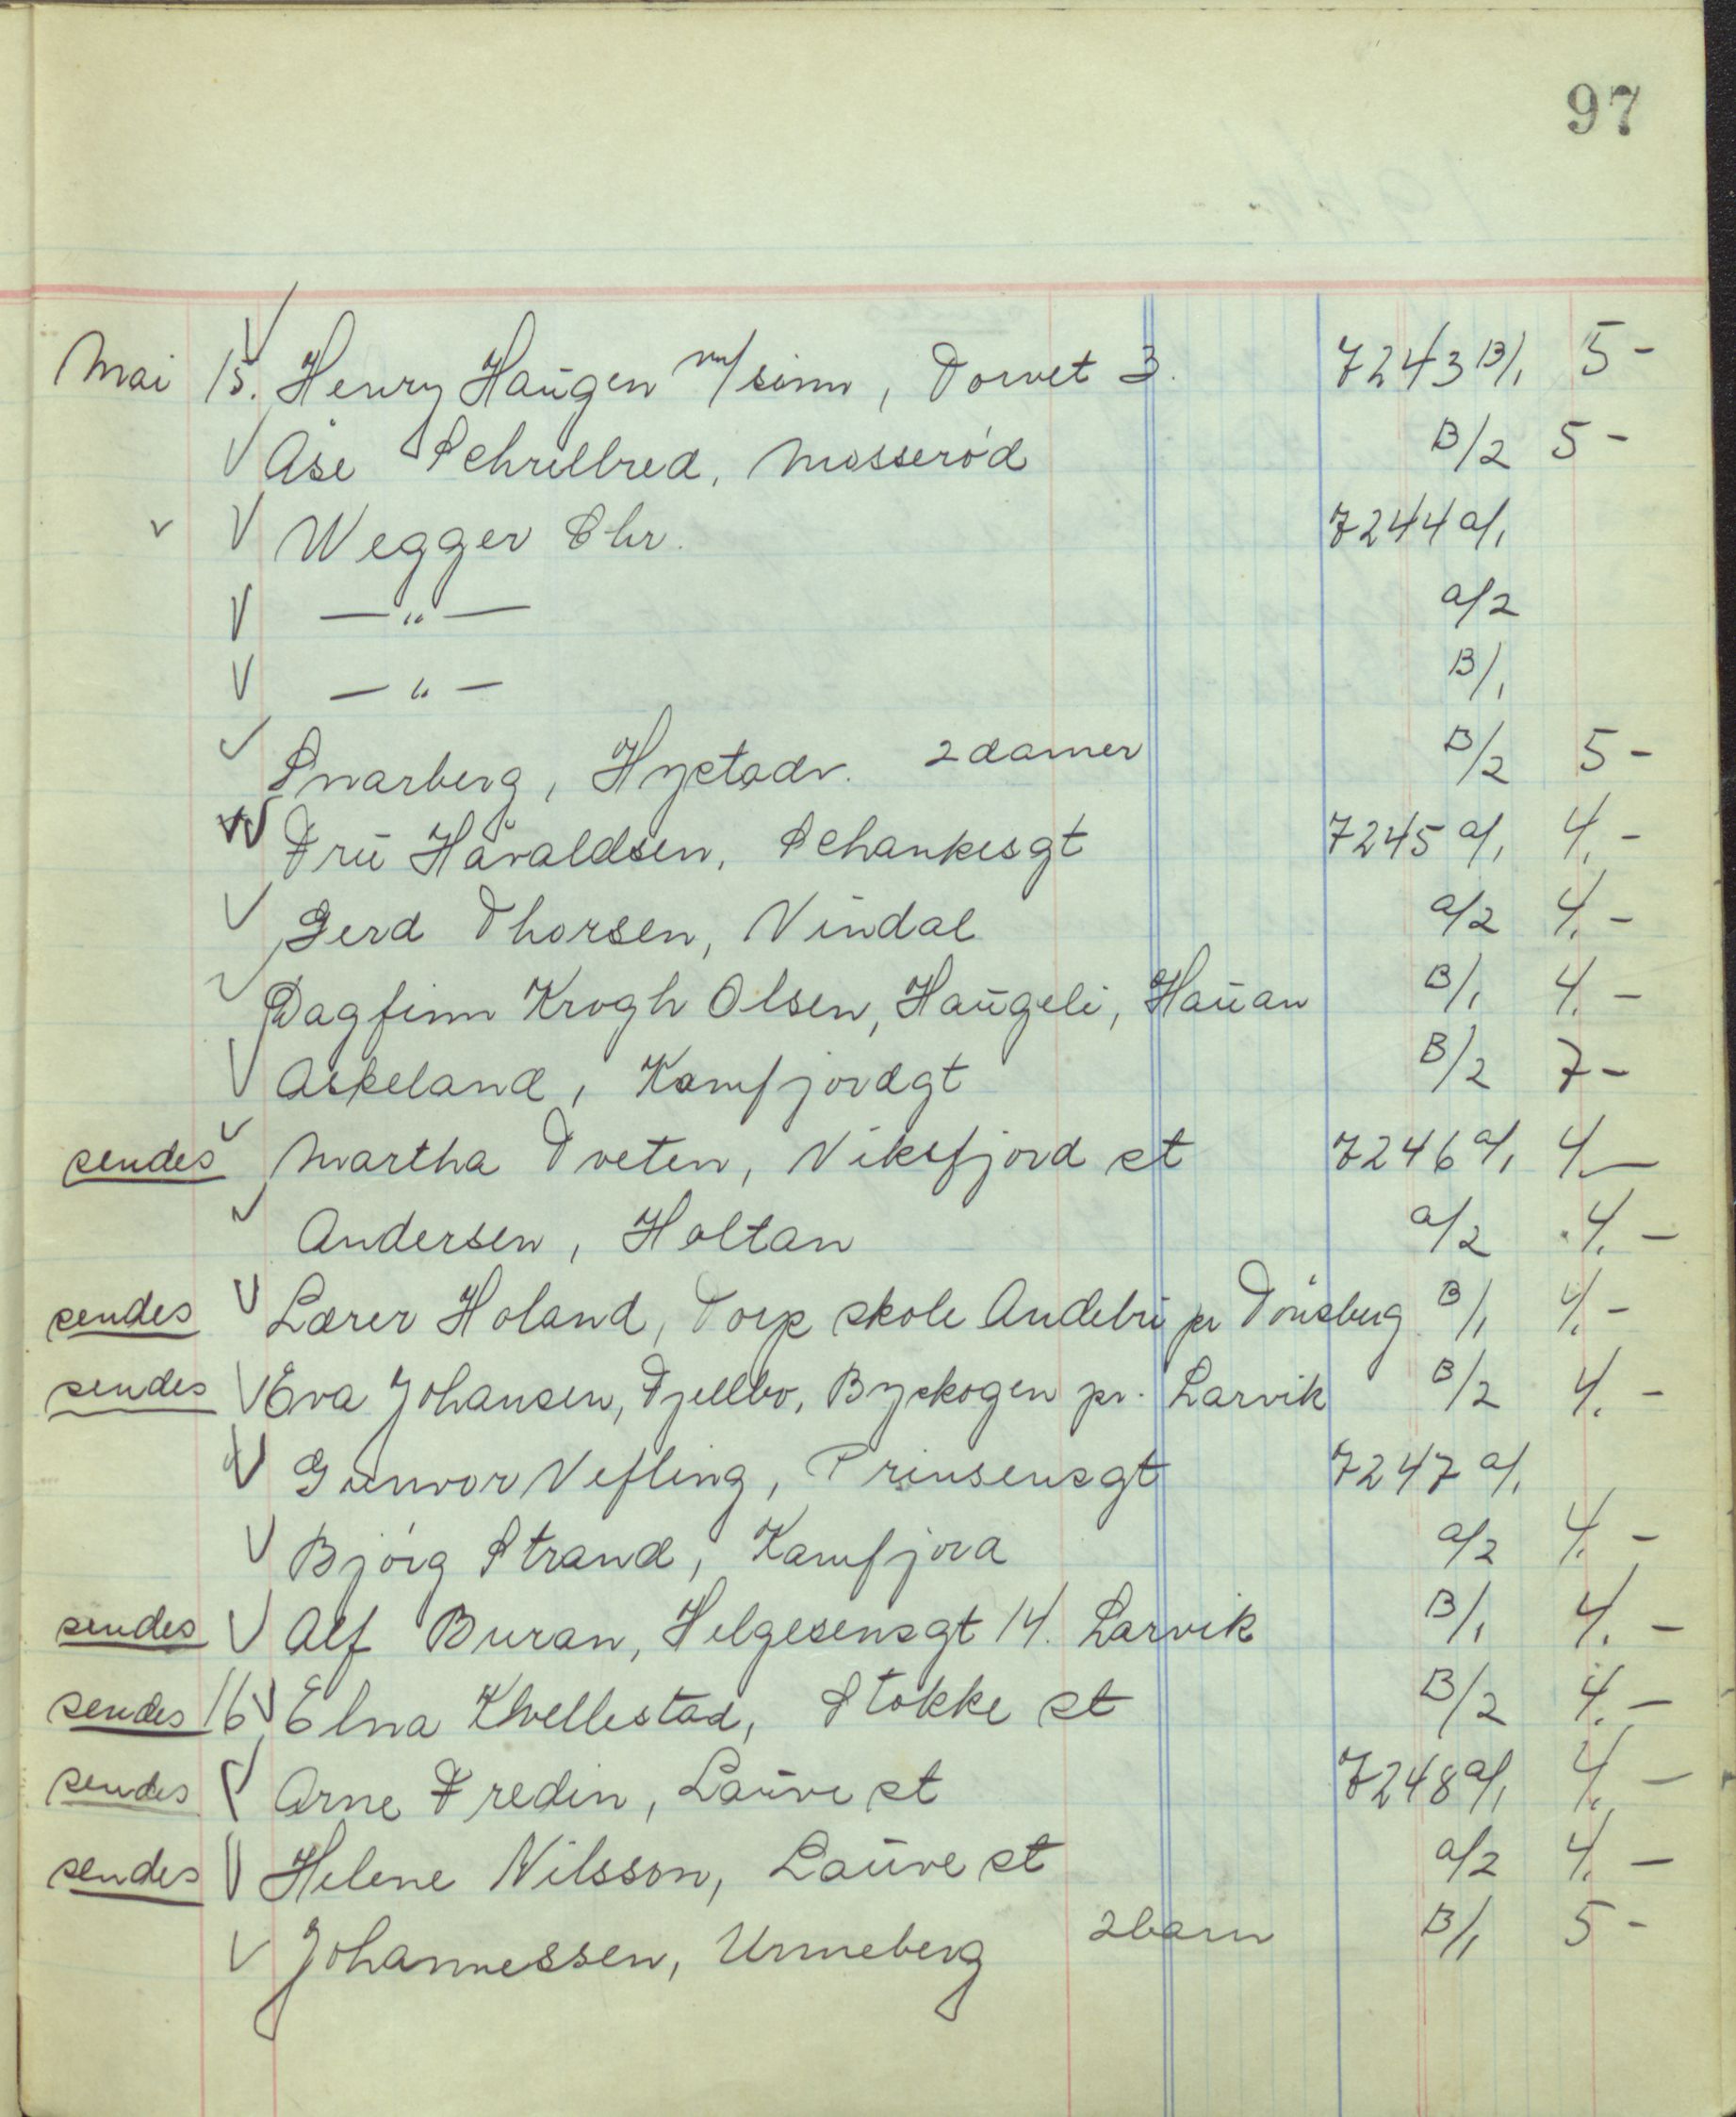 97
Mai 15. Henry Haugen m/sønn, Torvet 3. 7243 B/1 5-
Åse Schrellred, Mosserød B/2 5-
Wegger Chr. 7244 a/1
—"— a/2
—"— B/1
Snarberg, Hystadv. 2 damer B/2 5-
Fru Håvaldsen, Schankesgt 7245 a/1 4.-
Gerd Thorsen, Vindal a/2 4.-
Dagfinn Krogh Olsen, Haugeli, Hauan B/1 4.-
Askeland, Kamfjordgt B/2 7-
sendes Martha Tveten, Viksfjord st 7246 a/1 4.-
Andersen, Holtan a/2 4.-
sendes Lærer Holand, Torp skole Andebu pr Tønsberg B/1 4.-
sendes Eva Johansen, Fjellbo, Byskogen pr. Larvik B/2 4.-
Gunvor Vefling, Prinsensgt 7247 a/1
Bjørg Strand, Kamfjord a/2 4.-
sendes Alf Buran, Helgesensgt 14. Larvik B/1 4.-
sendes 16 Elna Kvellestad, Stokke st B/2 4.-
sendes Arne Fredin, Lauve st 7248 a/1 4.-
sendes Helene Nilsson, Lauve st a/2 4.-
Johannessen, Unneberg 2 barn B/1 5-